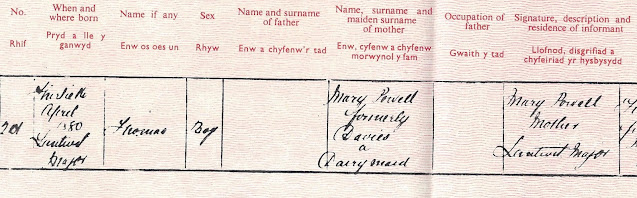 No.
Rhif
When and
where born
Pryd a lle y
ganwyd
Name if any
Enw os oes un
Sex
Rhyw
Name and surname
of father
Enw a chyfenw'r tad
Name, surname and
maiden surname
of mother
Enw, cyfenw a chyfenw
morwynol y fam
Occupation of
father
Gwaith y tad
Signature, description and
residence of informant
Llofnod, disgrifiad a
chyfeiriad yr hysbysydd
Thirtieth
April
1880
Llantwit
Major
Thomas
Boy
Mary Powell
formerly
Davies
a
Dairymaid
Mary Powell
Mother
Llantwit Major